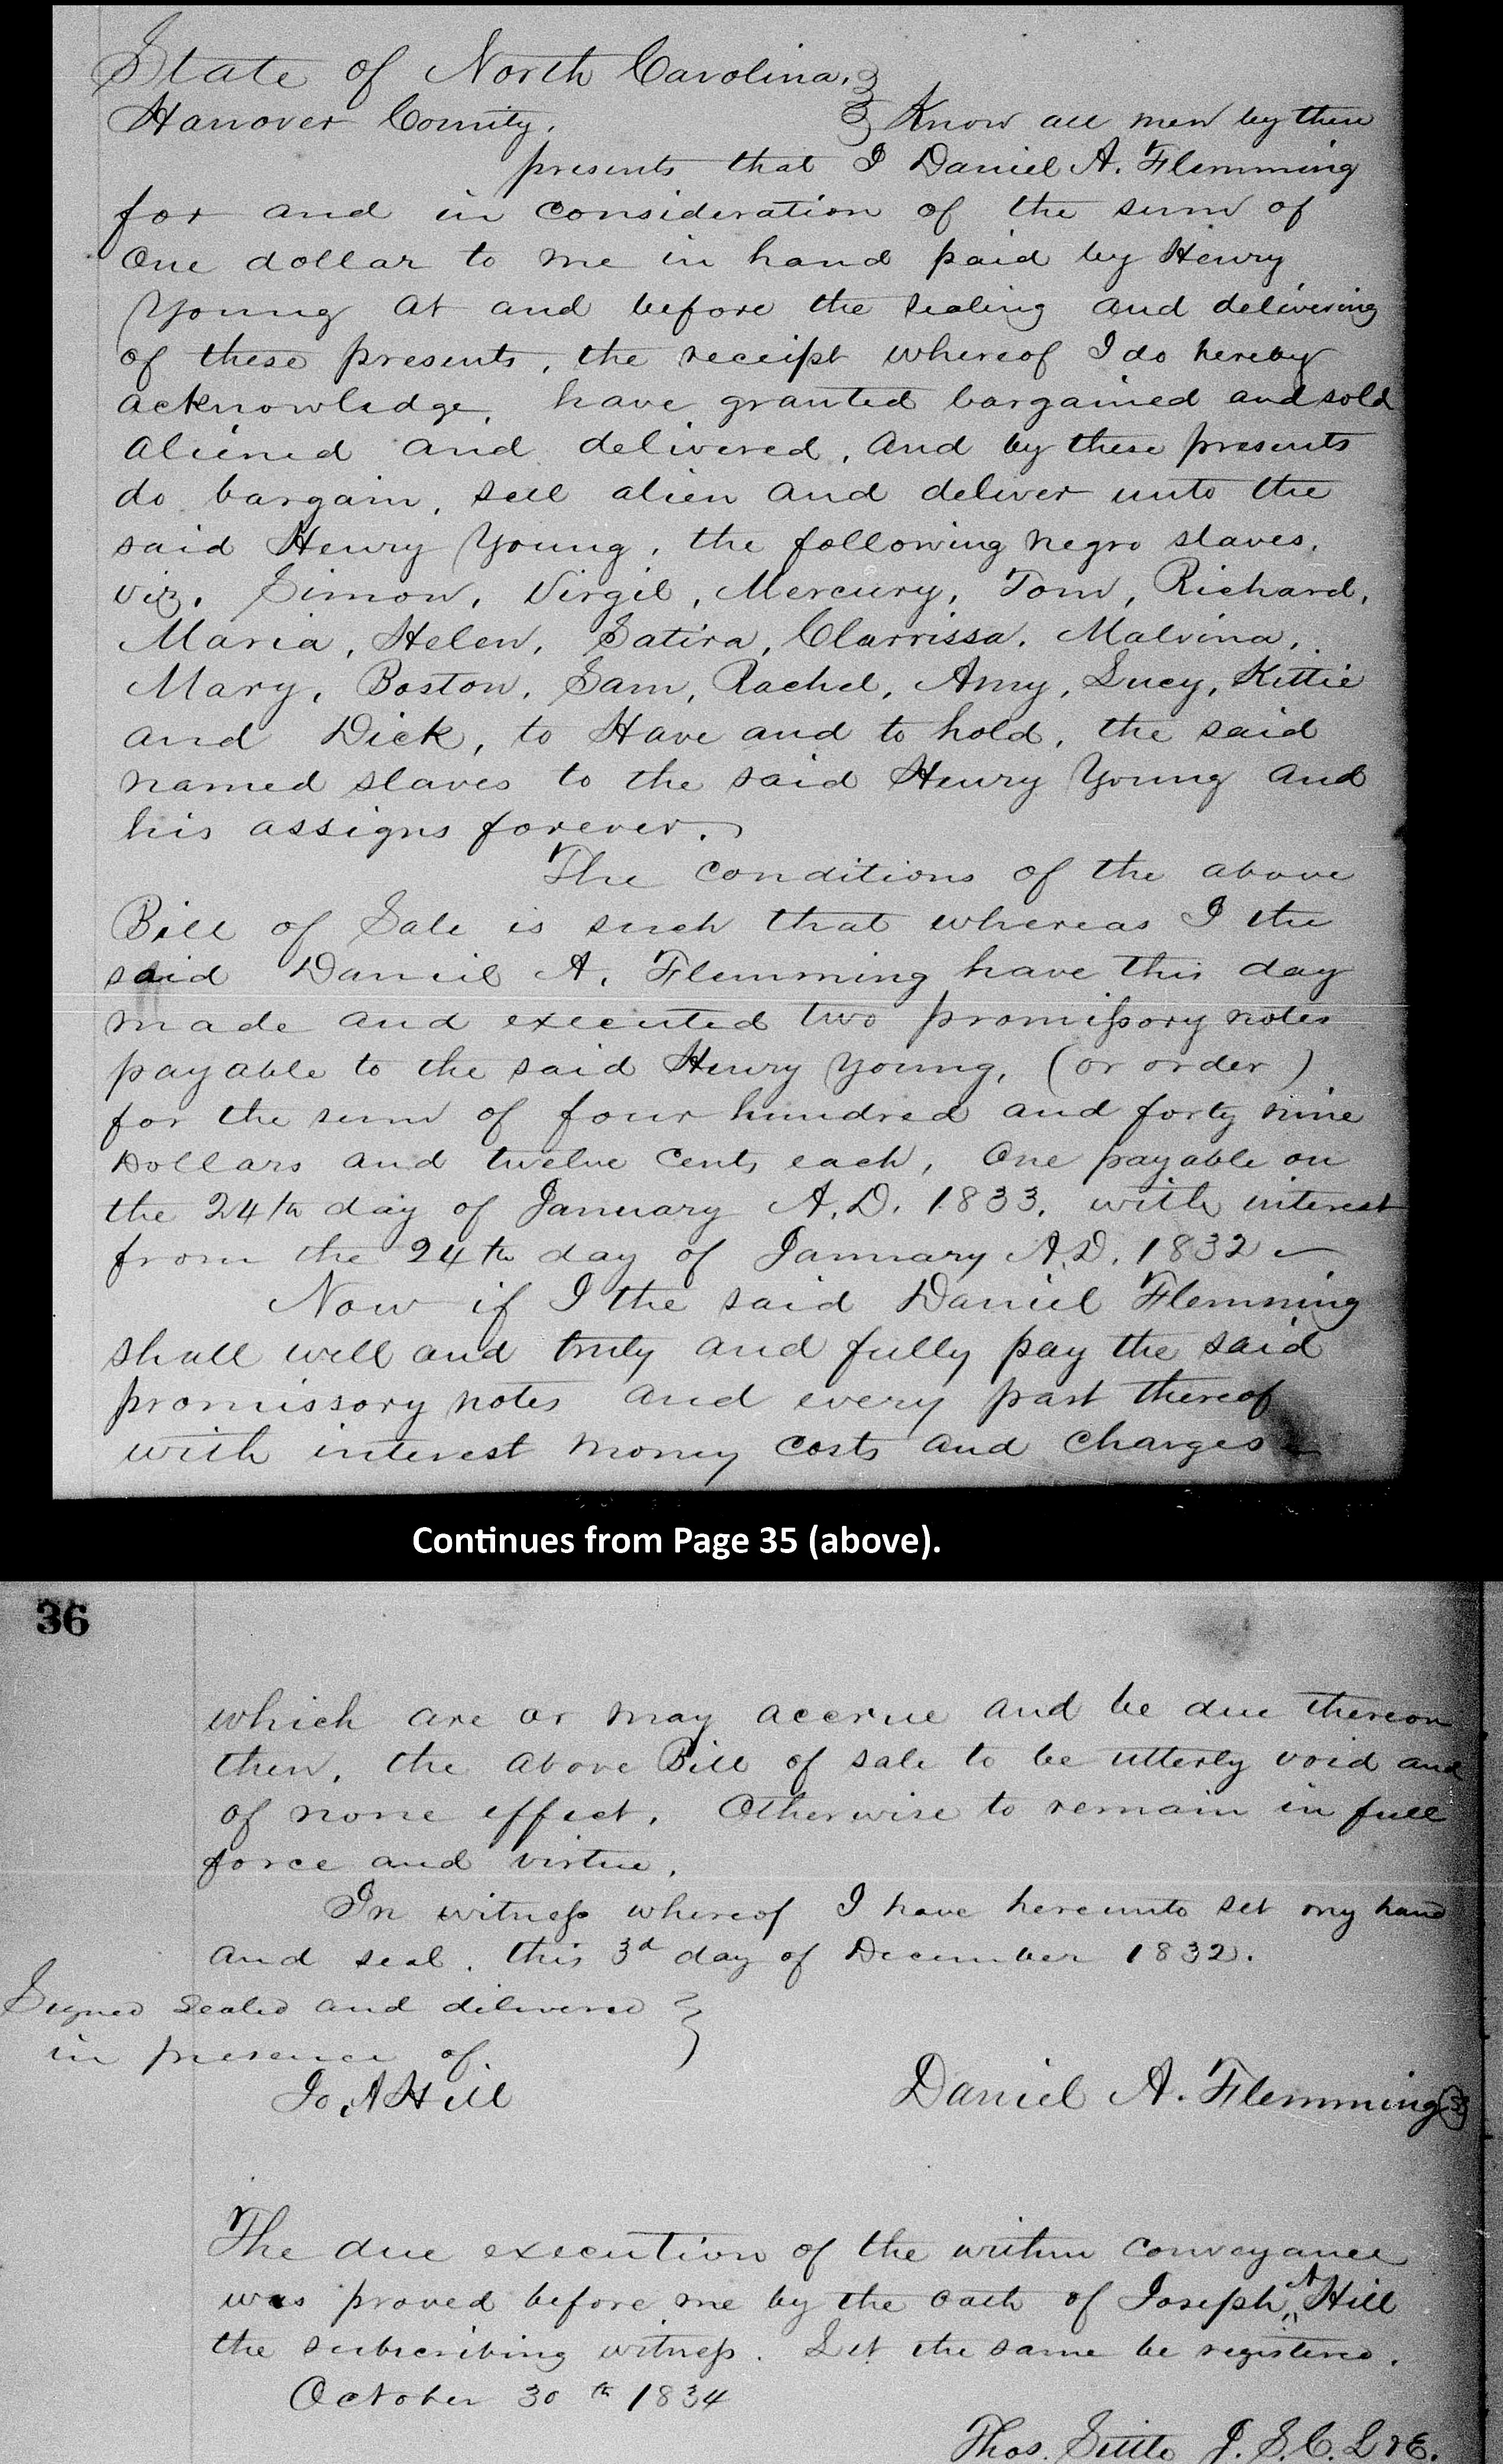 State of North Carolina.
Hanover County. Know all men by these
presents that I Daniel A. Flemming
for and in consideration of the sum of
One dollar to me in hand paid by Henry
Young at and before the sealing and delivering
of these presents, the receipt whereof I do hereby
acknowledge, have granted bargained and sold
aliened and delivered, and by these presents
do bargain, sell alien and deliver unto the
said Henry Young, the following negro slaves,
viz. Simon, Virgil, Mercury, Tom, Richard,
Maria, Helen, Satira, Clarrissa, Malvina,
Mary, Boston, Sam, Rachel, Amy, Lucy, Kittie
and Dick, to Have and to hold, the said
named slaves to the said Henry Young and
his assigns forever.
The conditions of the above
Bill of Sale is such that whereas I the
said Daniel A. Flemming have this day
made and executed two promissory notes
payable to the said Henry Young, (or order)
for the sum of four hundred and forty nine
Dollars and twelve Cents each, One payable on
the 24th day of January A.D. 1833. with interest
from the 24th day of January A.D. 1832
Now if I the said Daniel Flemming
shall well and truly and fully pay the said
promissory notes and every part thereof
with interest money costs and charges
Continues from Page 35 (above).
36
which are or may accrue and be due thereon
then, the above Bill of sale to be utterly void and
of none effect. Otherwise to remain in full
force and virtue.
In witness whereof I have hereunto set my hand
and seal. this 3d day of December 1832.
Signed Sealed and delivered
in presence of
Jo. A Hill
Daniel A. Flemming
The due execution of the within conveyance
was proved before me by the oath of Joseph A Hill
the subscribing witness. Let the same be registered.
October 30th 1834
Thos. Settle J. S. C. L & E.